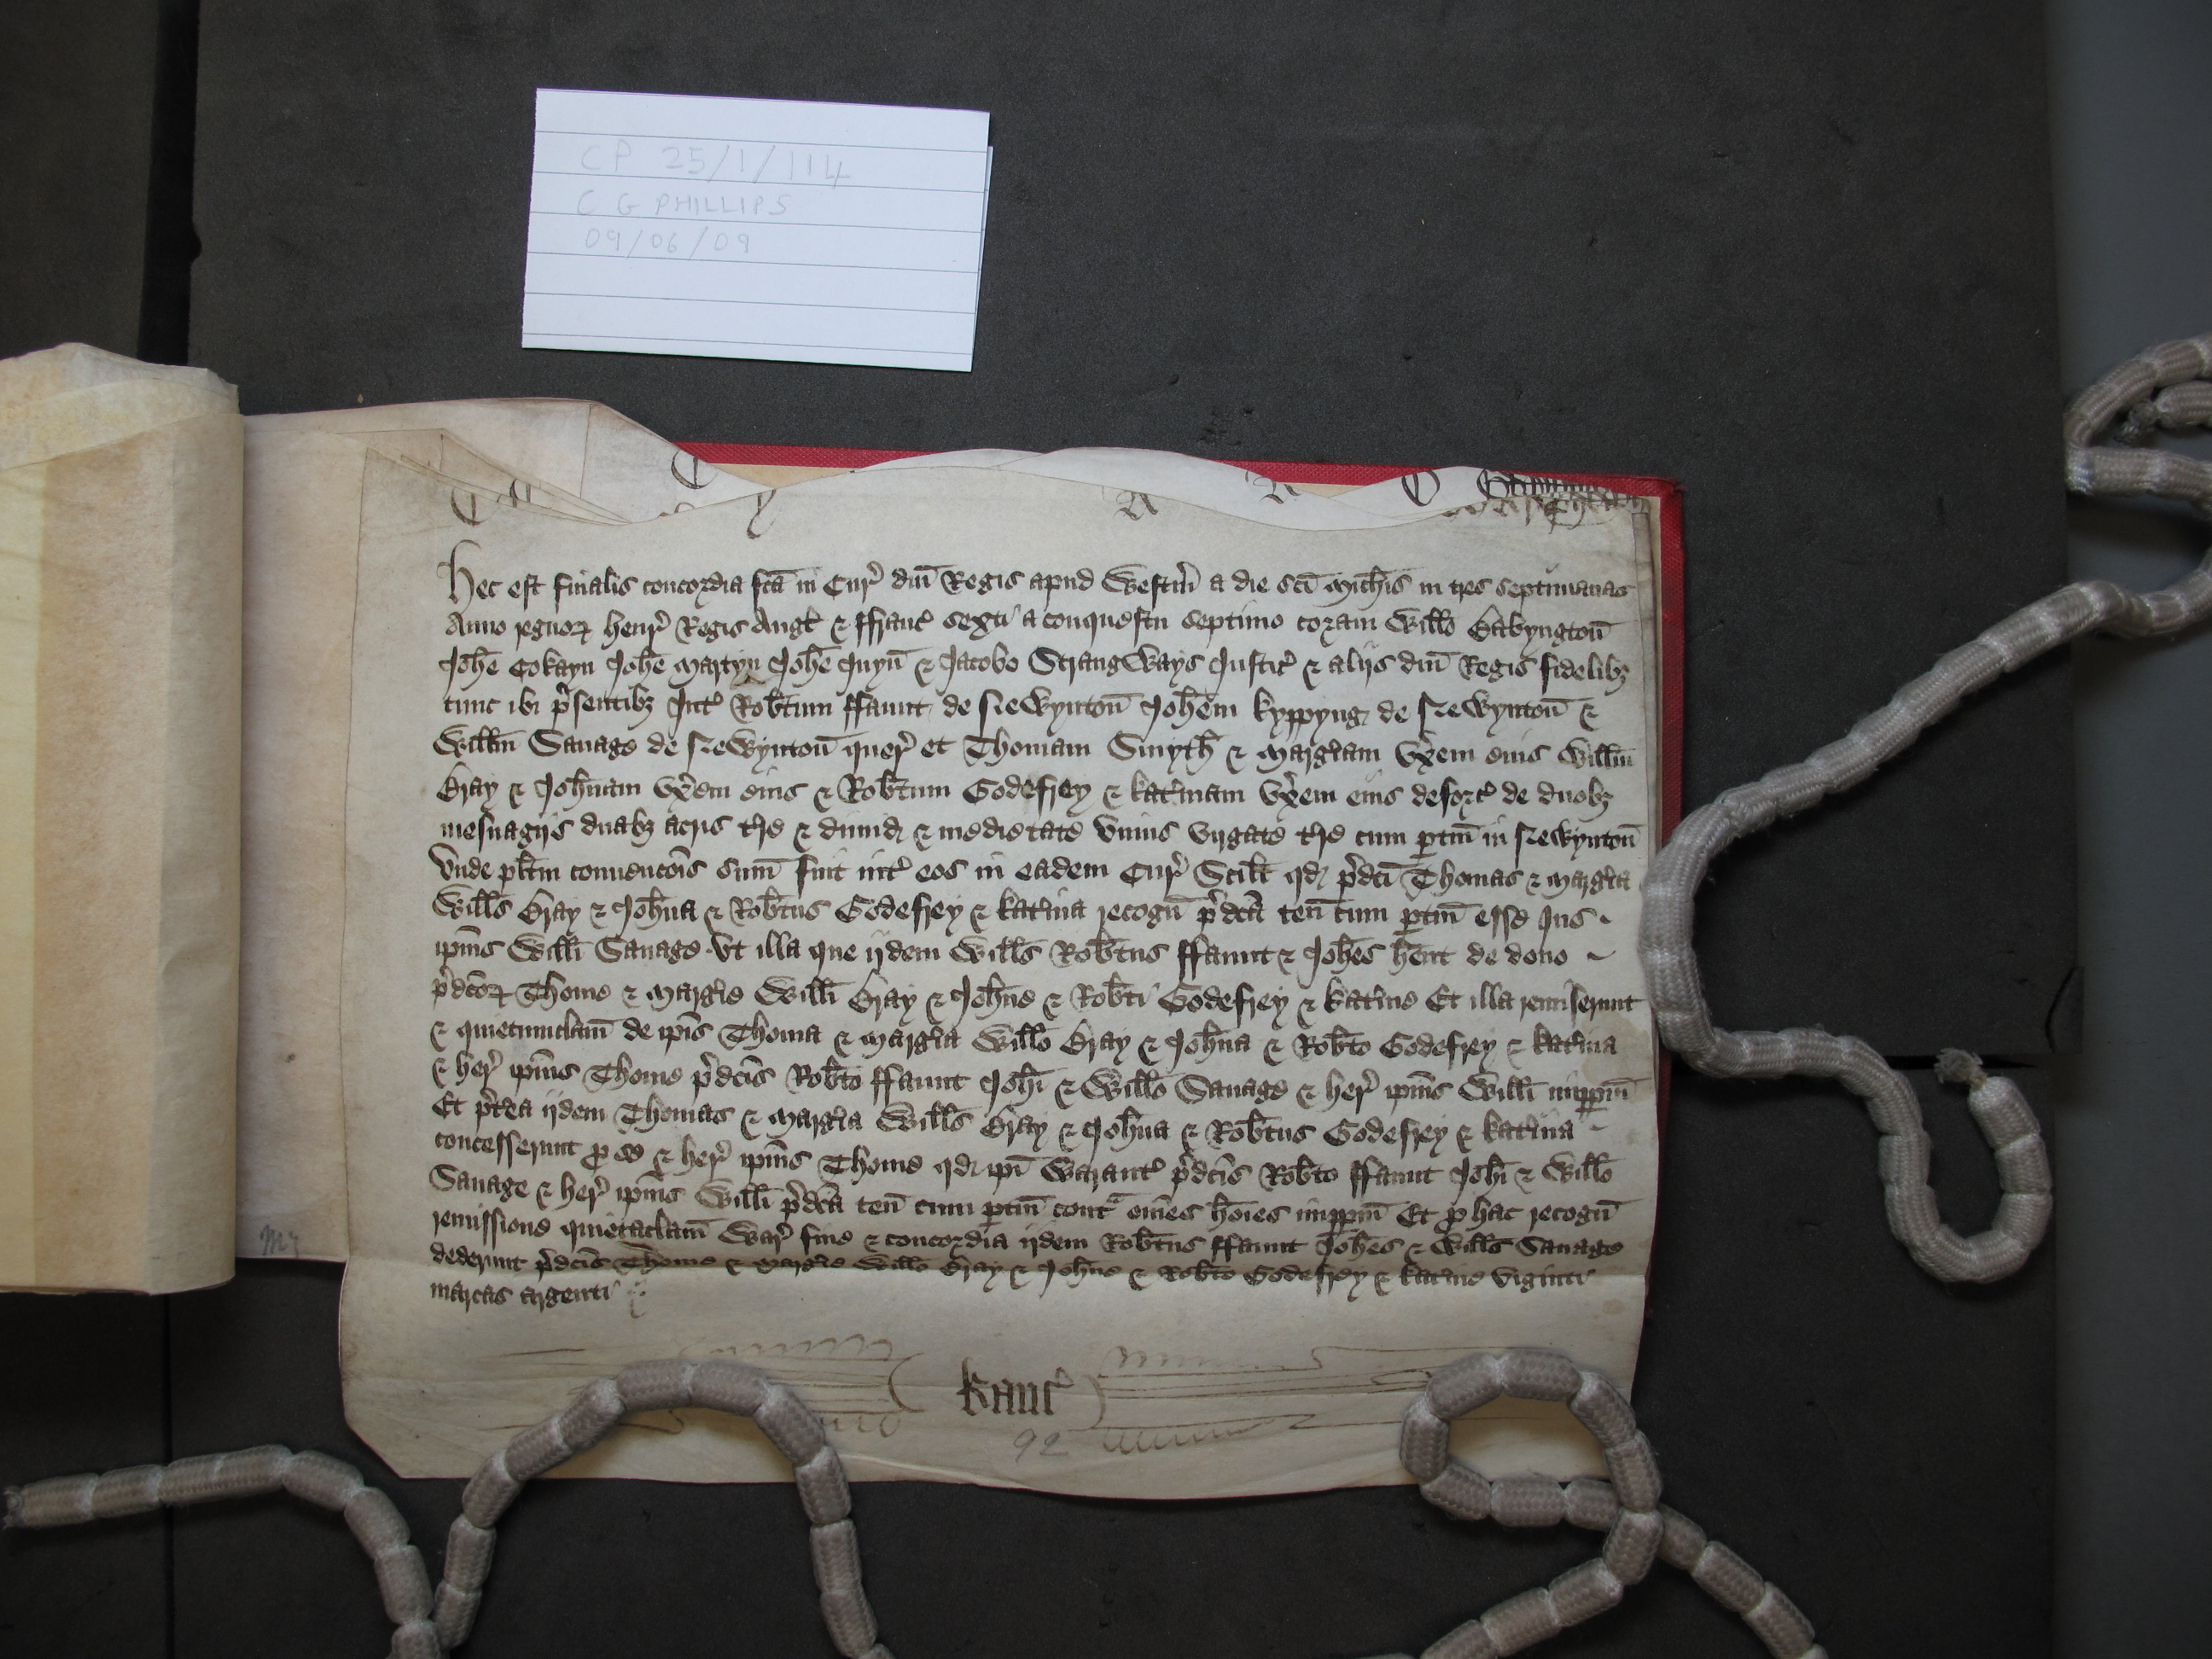 CP 25/1/114
C G PHILLIPS
09/06/09
Hec est finalis concordia fcā in Cur̉ dn̄i Regis apud Westm̉ a die sc̄i Mich̄is in tres septimanas
Anno regnoꝝ Henr̉ Regis Angl̉ & ffranc̉ sexti a conquestu septimo coram Will̄o Babyngton̄
Joh̄e Cokayn Joh̄e Martyn Joh̄e Juyn̄ & Jacobo Strangways Justic̉ & alijs dn̄i Regis fidelibꝫ
tunc ibi p̉sentibꝫ Int̉ Rob̄tum ffaunt de Newynton̄ Joh̄em kyppyng de Newynton̄ &
Will̄m Sauage de Newynton̄ quer̉ et Thomam Smyth̄ & Marg̉iam vx̉em eius Will̄m
Bray & Joh̄nam vx̉em eius & Rob̄tum Godefrey & kat̉inam vx̉em eius deforc̉ de duobꝫ
mesuagijs duabꝫ acris t̉re & dimid & medietate vnius virgate t̉re cum ptin̄ in Newynton̄
Vnde pl̄itm conuencōis sum̄ fuit int̉ eos in eadem Cur̉ Scil̄t qd p̉dc̄i Thomas & Marg̉ia
Will̄s Bray & Joh̄na & Rob̄tus Godefrey & kat̉ina recogn̄ p̉dc̄a ten̄ cum ptin̄ esse Jus
ip̄ius Will̄i Sauage vt illa que ijdem Will̄s Rob̄tus ffaunt & Joh̄es hēnt de dono
p̉dc̄oꝝ Thome & Marg̉ie Will̄i Bray & Joh̄ne & Rob̄ti Godefrey & kat̉ine Et illa remiserunt
& quietumclam̄ de ip̄is Thoma & Marg̉ia Will̄o Bray & Joh̄na & Rob̄to Godefrey & kat̉ina
& her̉ ip̄ius Thome p̉dc̄is Rob̄to ffaunt Joh̄i & Will̄o Sauage & her̉ ip̄ius Will̄i imppm̄
Et p̉tea ijdem Thomas & Marg̉ia Will̄s Bray & Joh̄na & Rob̄tus Godefrey & kat̉ina
concesserunt ꝓ se & her̉ ip̄ius Thome qd ip̄i Warant̉ p̉dc̄is Rob̄to ffaunt Joh̄i & Will̄o
Sauage & her̉ ip̄ius Will̄i p̉dc̄a ten̄ cum ptin̄ cont̉ om̄es hōies imppm̄ Et ꝓ hac recogn̄
remissione quietaclam̄ War̉ fine & concordia ijdem Rob̄tus ffaunt Joh̄es & Will̄s Sauage
dederunt p̉dc̄is Thome & Marg̉ie Will̄o Bray & Joh̄ne & Rob̄to Godefrey & kat̉ine viginti
marcas argenti
kanc̉
92